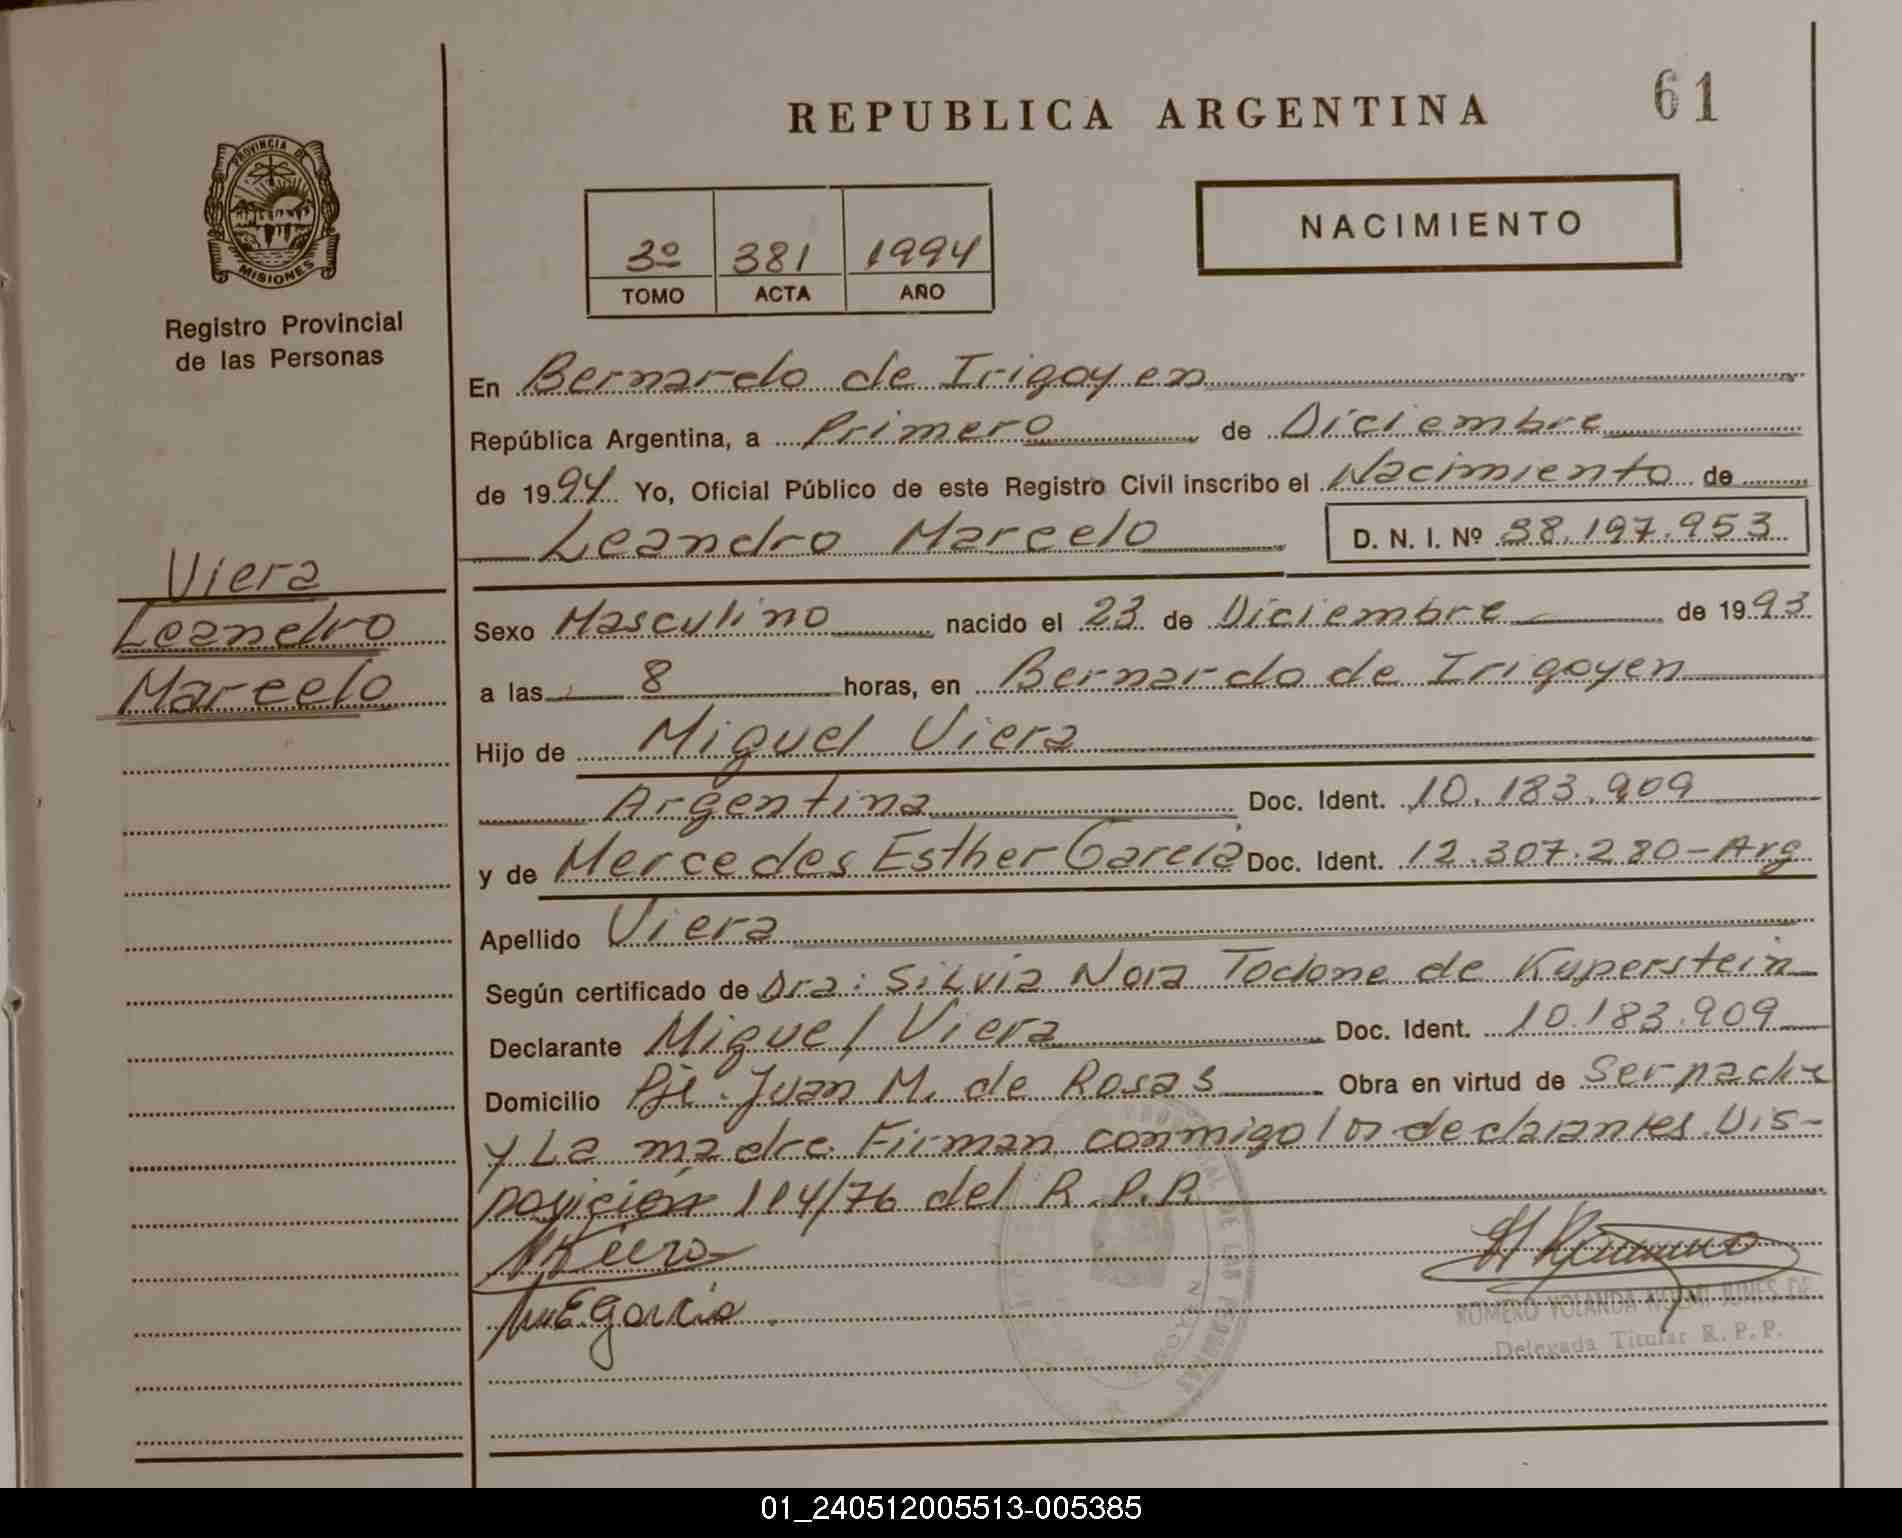 REPUBLICA ARGENTINA
61
PROVINCIA DE
MISIONES
Registro Provincial
de las Personas
3º 381 1994
TOMO ACTA AÑO
NACIMIENTO
En Bernardo de Irigoyen
República Argentina, a Primero de Diciembre
de 1994 Yo, Oficial Público de este Registro Civil inscribo el Nacimiento de
Leandro Marcelo D. N. I. Nº 38.197.953
Viera
Leandro
Marcelo
Sexo Masculino nacido el 23 de Diciembre de 1993
a las 8 horas, en Bernardo de Irigoyen
Hijo de Miguel Viera
Argentina Doc. Ident. 10.183.909
y de Mercedes Esther Garcia Doc. Ident. 12.307.280-Arg
Apellido Viera
Según certificado de Dra: Silvia Nora Todone de Kuperstein
Declarante Miguel Viera Doc. Ident. 10.183.909
Domicilio Pje. Juan M. de Rosas Obra en virtud de Ser padre
y La madre. Firman conmigo los declarantes. Dis-
posición 114/76 del R.P.P.
M E Garcia
ROMERO YOLANDA NOEMI JUNES DE
Delegada Titular R. P. P.
01_240512005513-005385